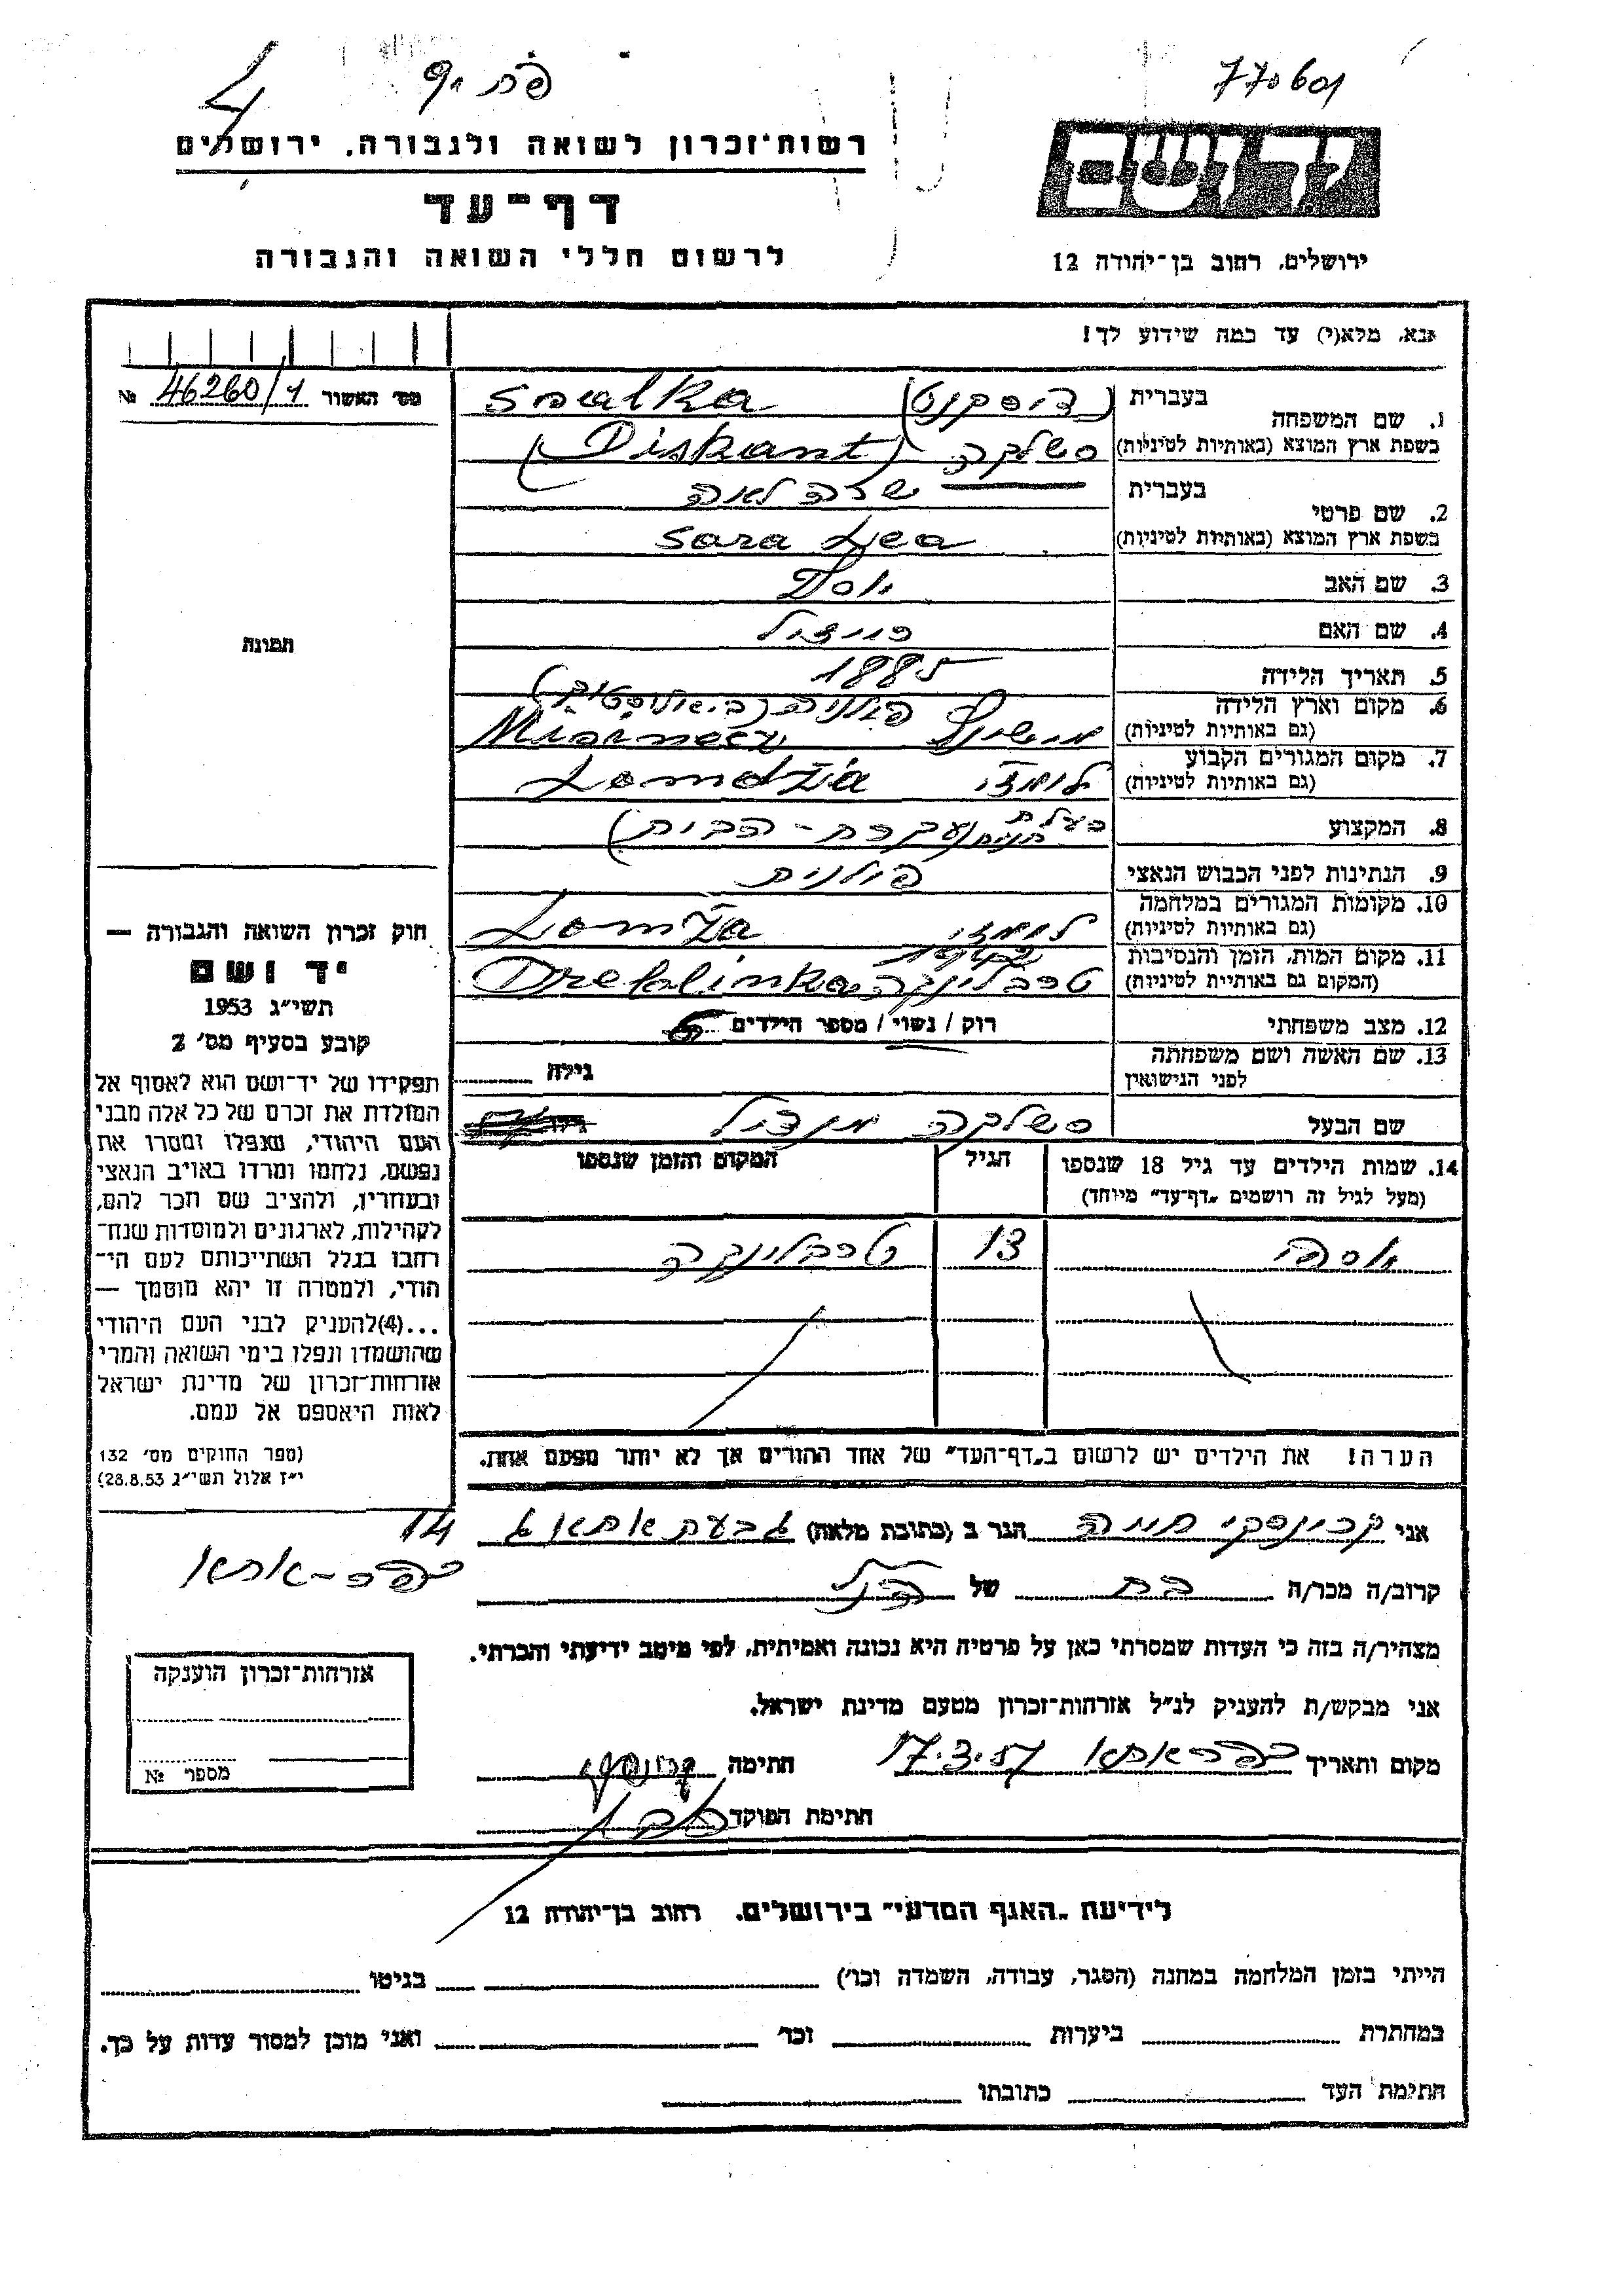 770601
יד ושם
ירושלים, רחוב בן־יהודה 12
רשות־זכרון לשואה ולגבורה, ירושלים
דף־עד
לרשום חללי השואה והגבורה
נא, מלא(י) עד כמה שידוע לך!
מס׳ האשור 46260/1 №
1. שם המשפחה
בעברית (דיסקנט) Soealka
בשפת ארץ המוצא (באותיות לטיניות) סשלקה (Diskant)
2. שם פרטי
בעברית שרה לאה
בשפת ארץ המוצא (באותיות לטיניות) Sara Lea
3. שם האב
4. שם האם
5. תאריך הלידה 1885
6. מקום וארץ הלידה
(גם באותיות לטיניות)
7. מקום המגורים הקבוע
(גם באותיות לטיניות) לומזה Lomdża
8. המקצוע בעלת חנות (עקרת-הבית)
9. הנתינות לפני הכבוש הנאצי פולנית
10. מקומות המגורים במלחמה
(גם באותיות לטיניות) לומזה Lomża
11. מקום המות, הזמן והנסיבות
(המקום גם באותיות לטיניות) טרבלינקה Dreblinka
12. מצב משפחתי רוק / נשוי / מספר הילדים 6
13. שם האשה ושם משפחתה
לפני הנישואין גילה
שם הבעל סשלקה מנדול
14. שמות הילדים עד גיל 18 שנספו הגיל המקום והזמן שנספו
(מעל לגיל זה רושמים „דף־עד״ מיוחד)
אסתר 13 טרבלינקה
הערה! את הילדים יש לרשום ב„דף־העד״ של אחד ההורים אך לא יותר מפעם אחת.
תמונה
חוק זכרון השואה והגבורה —
יד ושם
תשי״ג 1953
קובע בסעיף מס׳ 2
תפקידו של יד־ושם הוא לאסוף אל
המולדת את זכרם של כל אלה מבני
העם היהודי, שנפלו ומסרו את
נפשם, נלחמו ומרדו באויב הנאצי
ובעוזריו, ולהציב שם וזכר להם,
לקהילות, לארגונים ולמוסדות שנח־
רבו בגלל השתייכותם לעם הי־
הודי, ולמטרה זו יהא מוסמך —
...(4) להעניק לבני העם היהודי
שהושמדו ונפלו בימי השואה והמרי
אזרחות־זכרון של מדינת ישראל
לאות היאספם אל עמם.
(ספר החוקים מס׳ 132
י״ז אלול תשי״ג 28.8.53)
אני קרינסקי חיה הגר ב (כתובת מלאה) גבעת אתא ג 14
כפר-אתא
קרוב/ה מכר/ה בת של הנ״ל
מצהיר/ה בזה כי העדות שמסרתי כאן על פרטיה היא נכונה ואמיתית, לפי מיטב ידיעתי והכרתי.
אני מבקש/ת להעניק לנ״ל אזרחות־זכרון מטעם מדינת ישראל.
מקום ותאריך כפר אתא 17.3.57 חתימה
חתימת הפוקד
אזרחות־זכרון הוענקה
מספר №
לידיעת „האגף המדעי״ בירושלים, רחוב בן־יהודה 12
הייתי בזמן המלחמה במחנה (הסגר, עבודה, השמדה וכו׳) בגיטו
במחתרת ביערות וכו׳ ואני מוכן למסור עדות על כך.
חתימת העד כתובתו